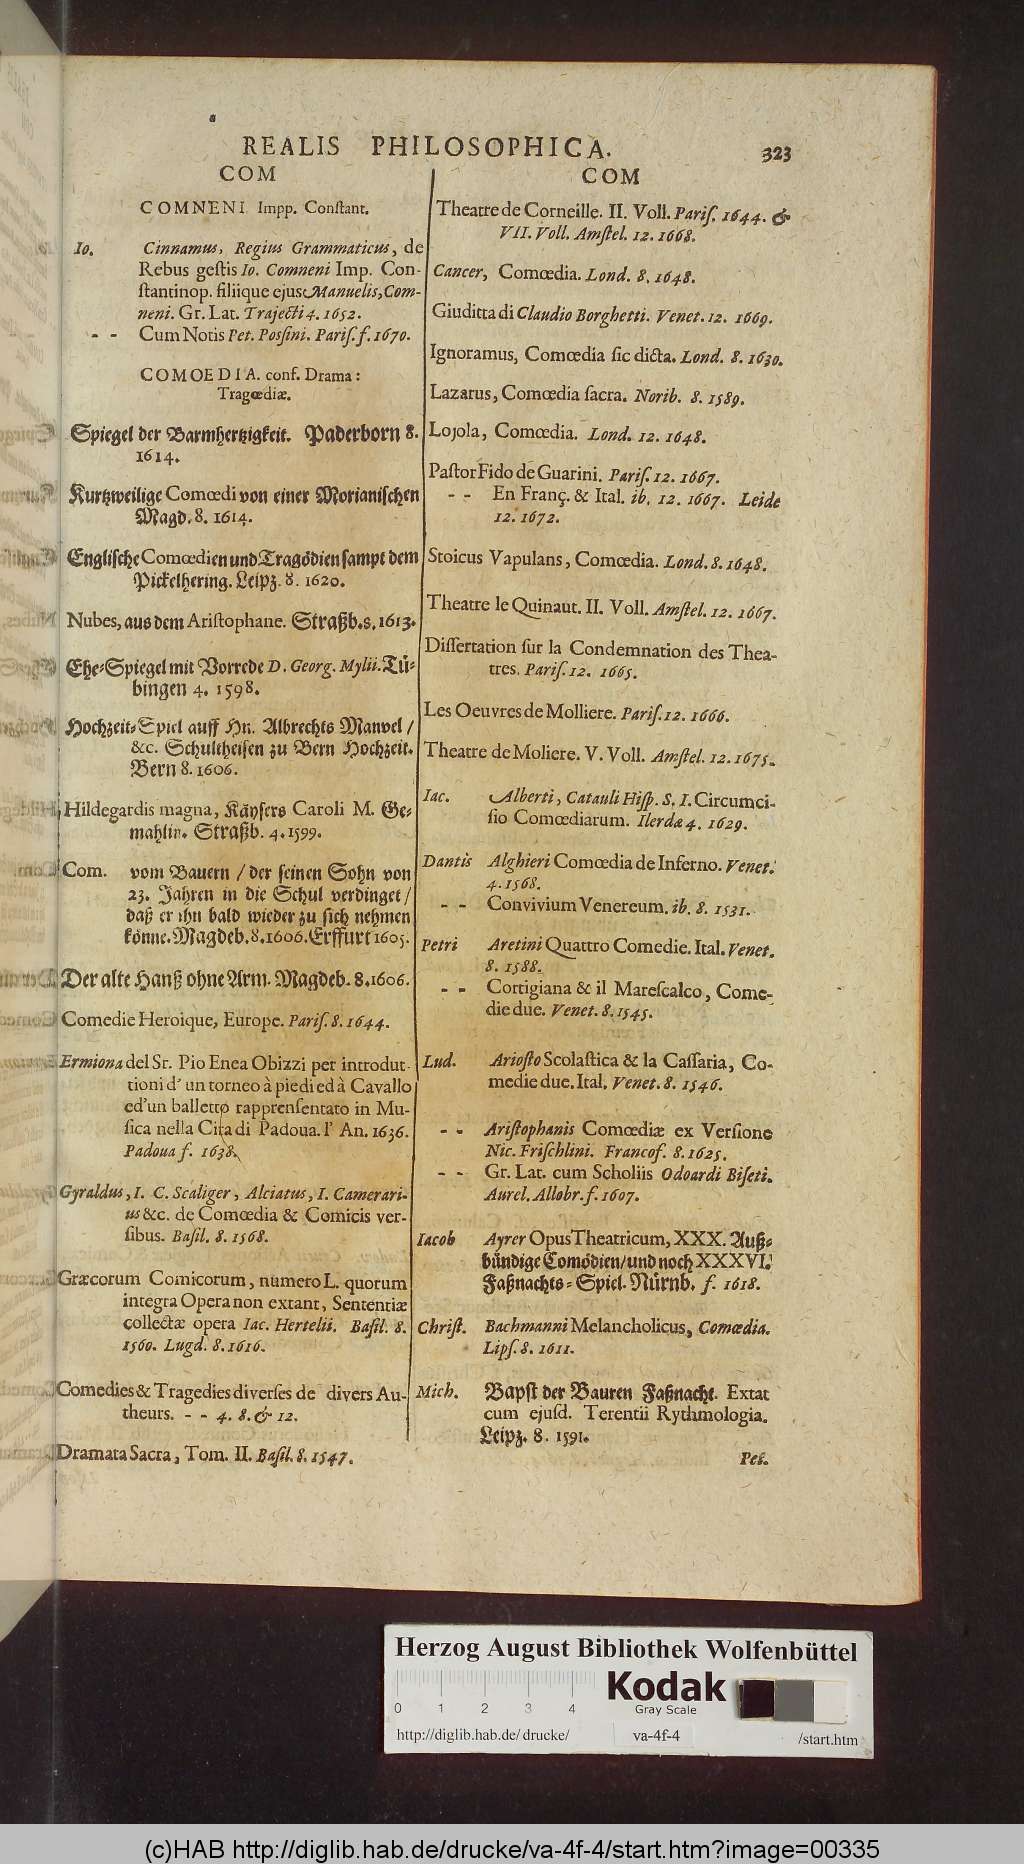 REALIS PHILOSOPHICA. 323
COM
COMNENI Impp. Conſtant.
Io. Cinnamus, Regius Grammaticus, de
Rebus geſtis Io. Comneni Imp. Con-
ſtantinop. filiique ejus Manuelis, Com-
neni. Gr. Lat. Trajecti 4. 1652.
- - Cum Notis Pet. Poſſini. Pariſ. f. 1670.
COMOEDIA. conf. Drama:
Tragœdiæ.
Spiegel der Barmhertzigkeit. Paderborn 8.
1614.
Kurtzweilige Comœdi von einer Morianiſchen
Magd. 8. 1614.
Engliſche Comœdien und Tragödien ſampt dem
Pickelhering. Leipz. 8. 1620.
Nubes, aus dem Ariſtophane. Straßb. 8. 1613.
Ehe-Spiegel mit Vorrede D. Georg. Mylii. Tü-
bingen 4. 1598.
Hochzeit-Spiel auff Hn. Albrechts Manvel /
&c. Schultheiſen zu Bern Hochzeit.
Bern 8. 1606.
Hildegardis magna, Käyſers Caroli M. Ge-
mahlin. Straßb. 4. 1599.
Com. vom Bauern / der ſeinen Sohn von
23. Jahren in die Schul verdinget /
daß er ihn bald wieder zu ſich nehmen
könne. Magdeb. 8. 1606. Erffurt 1605.
Der alte Hanß ohne Arm. Magdeb. 8. 1606.
Comedie Heroique, Europe. Pariſ. 8. 1644.
Ermiona del Sr. Pio Enea Obizzi per introdut-
tioni d' un torneo à piedi ed à Cavallo
ed'un balletto rapprenſentato in Mu-
ſica nella Cita di Padoua. l' An. 1636.
Padoua f. 1638.
Gyraldus, I. C. Scaliger, Alciatus, I. Camerari-
us &c. de Comœdia & Comicis ver-
ſibus. Baſil. 8. 1568.
Græcorum Comicorum, numero L. quorum
integra Opera non extant, Sententiæ
collectæ opera Iac. Hertelii. Baſil. 8.
1560. Lugd. 8. 1616.
Comedies & Tragedies diverſes de divers Au-
theurs. - - 4. 8. & 12.
Dramata Sacra, Tom. II. Baſil. 8. 1547.
COM
Theatre de Corneille. II. Voll. Pariſ. 1644. &
VII. Voll. Amſtel. 12. 1668.
Cancer, Comœdia. Lond. 8. 1648.
Giuditta di Claudio Borghetti. Venet. 12. 1669.
Ignoramus, Comœdia ſic dicta. Lond. 8. 1630.
Lazarus, Comœdia ſacra. Norib. 8. 1589.
Lojola, Comœdia. Lond. 12. 1648.
Paſtor Fido de Guarini. Pariſ. 12. 1667.
- - En Franç. & Ital. ib. 12. 1667. Leide
12. 1672.
Stoicus Vapulans, Comœdia. Lond. 8. 1648.
Theatre le Quinaut. II. Voll. Amſtel. 12. 1667.
Diſſertation ſur la Condemnation des Thea-
tres. Pariſ. 12. 1665.
Les Oeuvres de Molliere. Pariſ. 12. 1666.
Theatre de Moliere. V. Voll. Amſtel. 12. 1675.
Iac. Alberti, Catauli Hiſp. S. I. Circumci-
ſio Comœdiarum. Ilerdæ 4. 1629.
Dantis Alghieri Comœdia de Inferno. Venet.
4. 1568.
- - Convivium Venereum. ib. 8. 1531.
Petri Aretini Quattro Comedie. Ital. Venet.
8. 1588.
- - Cortigiana & il Mareſcalco, Come-
die due. Venet. 8. 1545.
Lud. Arioſto Scolaſtica & la Caſſaria, Co-
medie due. Ital. Venet. 8. 1546.
- - Ariſtophanis Comœdiæ ex Verſione
Nic. Friſchlini. Francof. 8. 1625.
- - Gr. Lat. cum Scholiis Odoardi Biſeti.
Aurel. Allobr. f. 1607.
Iacob Ayrer Opus Theatricum, XXX. Auß-
bündige Comödien / und noch XXXVI.
Faßnachts-Spiel. Nürnb. f. 1618.
Chriſt. Bachmanni Melancholicus, Comœdia.
Lipſ. 8. 1611.
Mich. Bapſt der Bauren Faßnacht. Extat
cum ejuſd. Terentii Rythmologia.
Leipz. 8. 1591.
Pet.
Herzog August Bibliothek Wolfenbüttel
0 1 2 3 4
Kodak
Gray Scale
http://diglib.hab.de/drucke/ va-4f-4 /start.htm
(c)HAB http://diglib.hab.de/drucke/va-4f-4/start.htm?image=00335